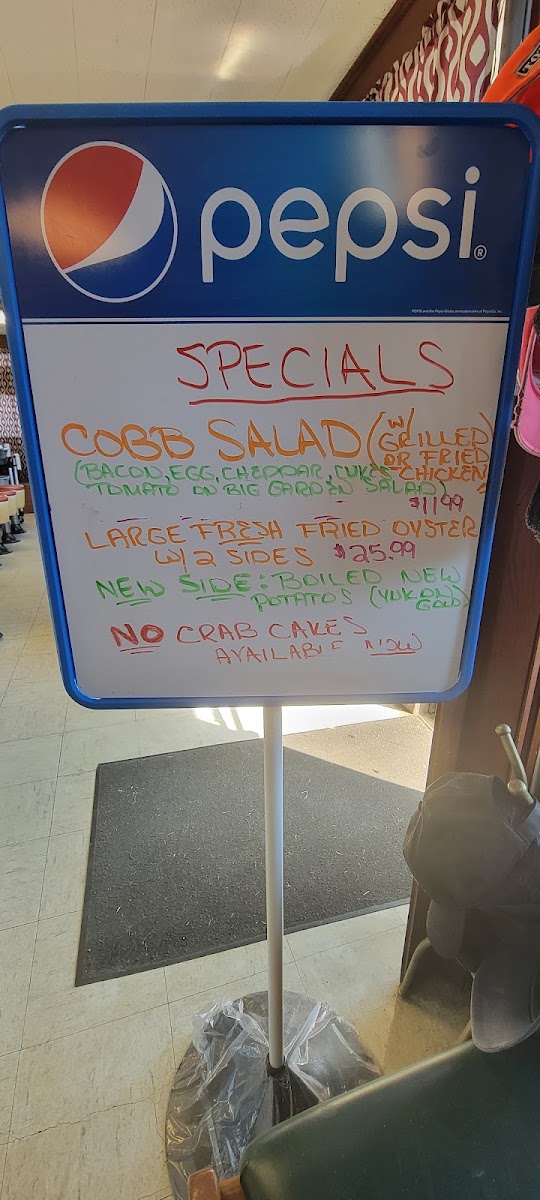 pepsi®
SPECIALS
COBB SALAD (W/ GRILLED OR FRIED CHICKEN)
(BACON, EGG, CHEDDAR, CUKES
TOMATO ON BIG GARDEN SALAD)
$11.99
LARGE FRESH FRIED OYSTER
W/ 2 SIDES $25.99
NEW SIDE: BOILED NEW
POTATOS (YUKON GOLD)
NO CRAB CAKES
AVAILABLE NOW